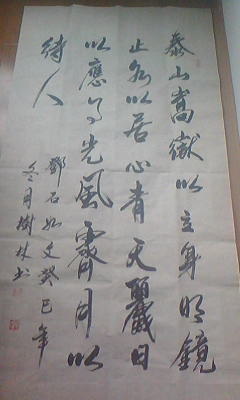 泰山嵩嶽以立身明鏡
止水以居心青天麗日
以應事光風霽月以
待人
鄧石如文癸巳年
冬月樹林书